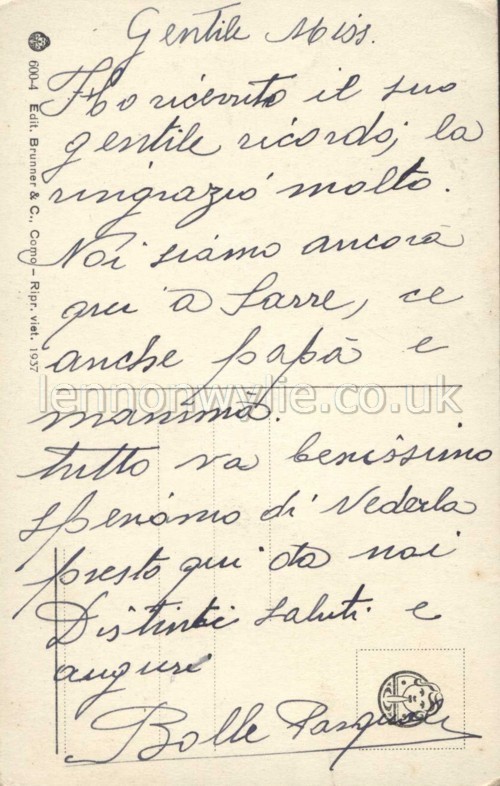 Gentile Miss.
Ho ricevuto il suo
gentile ricordo, la
ringrazio molto.
Noi siamo ancora
qui a Sarre, ce
anche papà e
mammà.
tutto va benissimo
speriamo di vederla
presto qui da noi
Distinti saluti e
auguri
Bolle
6004 Edit. Brunner & C., Como – Ripr. viet. 1937
lennonwylie.co.uk